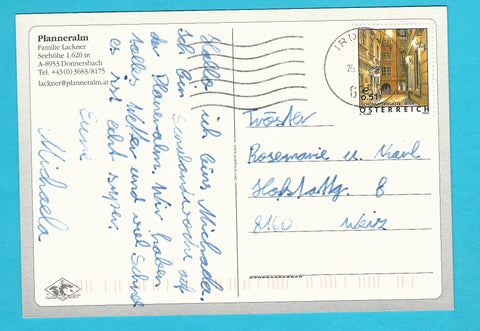 Planneralm
Familie Lackner
Seehöhe 1.620 m
A-8953 Donnersbach
Tel. +43(0)3683/8175
lackner@planneralm.at
Hallo ich bins Michaela.
Ich bin Skilandwoche auf
der Planeralm. Wir haben
tolles Wetter und viel Schnee
es ist echt super.
Eure
Michaela
IRD
25.
8
€ 0,51
SCHÖNLATERNGASSE · WIEN
ÖSTERREICH
Tröster
Rosemarie u. Karl
Hofstattg. 8
8160 Weiz